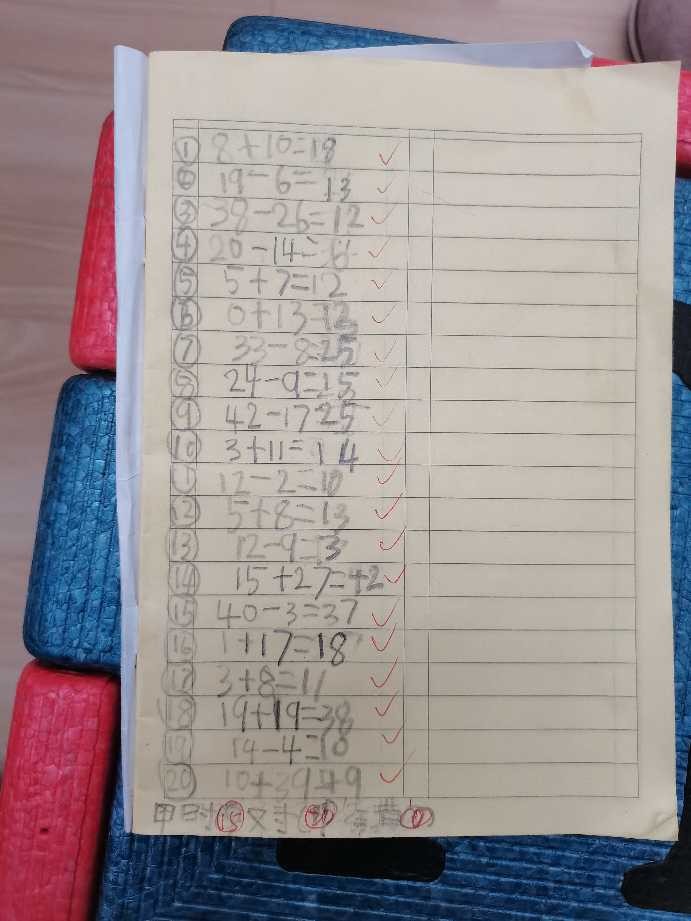 ① 8+10=18
② 19-6=13
③ 38-26=12
④ 20-14=6
⑤ 5+7=12
⑥ 0+13=13
⑦ 33-8=25
⑧ 24-9=15
⑨ 42-17=25
⑩ 3+11=14
⑪ 12-2=10
⑫ 5+8=13
⑬ 12-9=3
⑭ 15+27=42
⑮ 40-3=37
⑯ 1+17=18
⑰ 3+8=11
⑱ 19+19=38
⑲ 14-4=10
⑳ 10+39=49
15 又